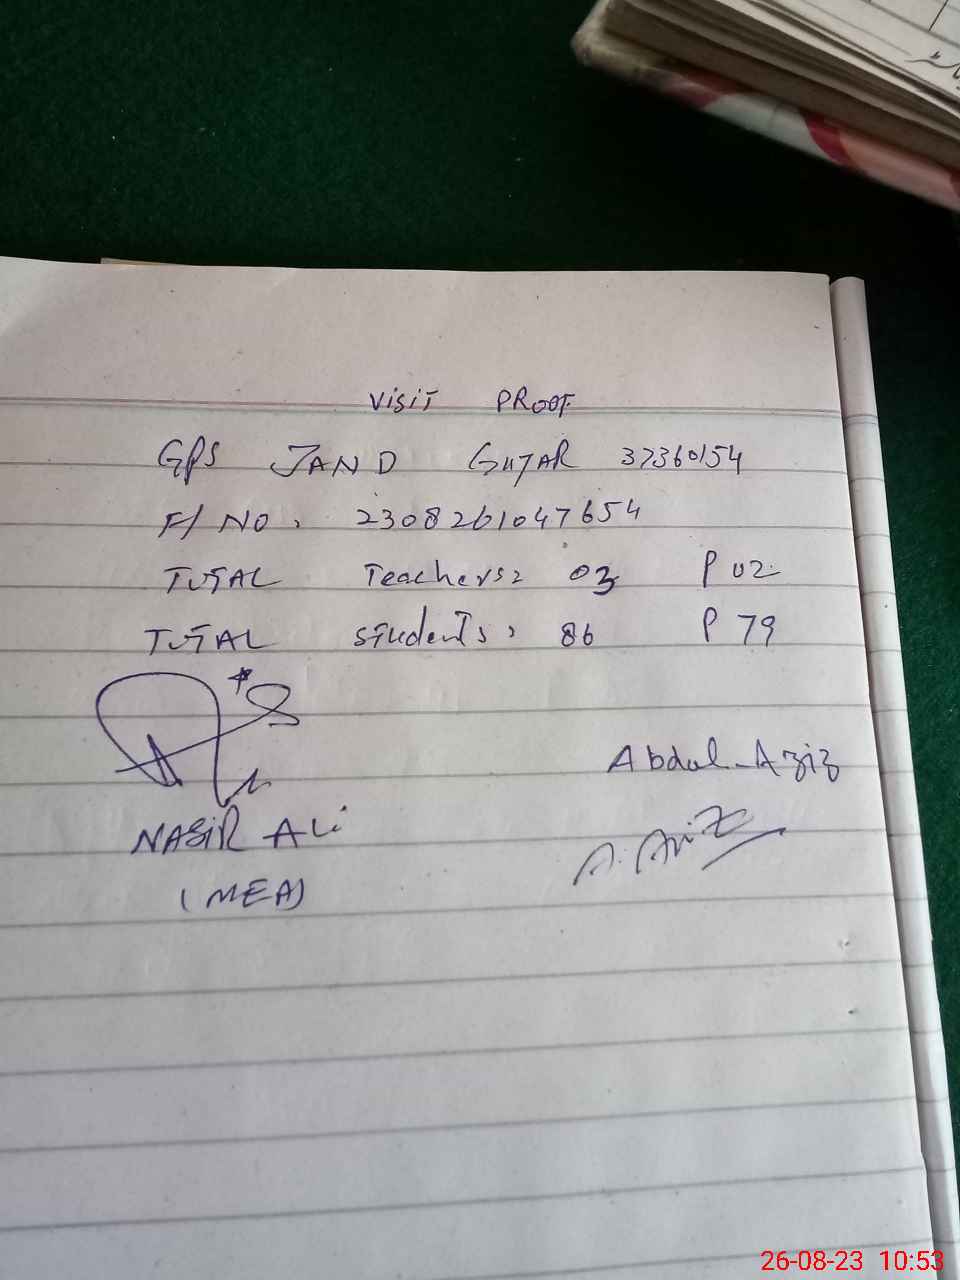 Visit PROOF
GPS JAND GUJAR 37360154
F/ NO: 2308261047654
TOTAL Teachers: 03 P 02
TOTAL students: 86 P 79
Abdul-Aziz
NASIR ALi
A. Aziz
(MEA)
26-08-23 10:53